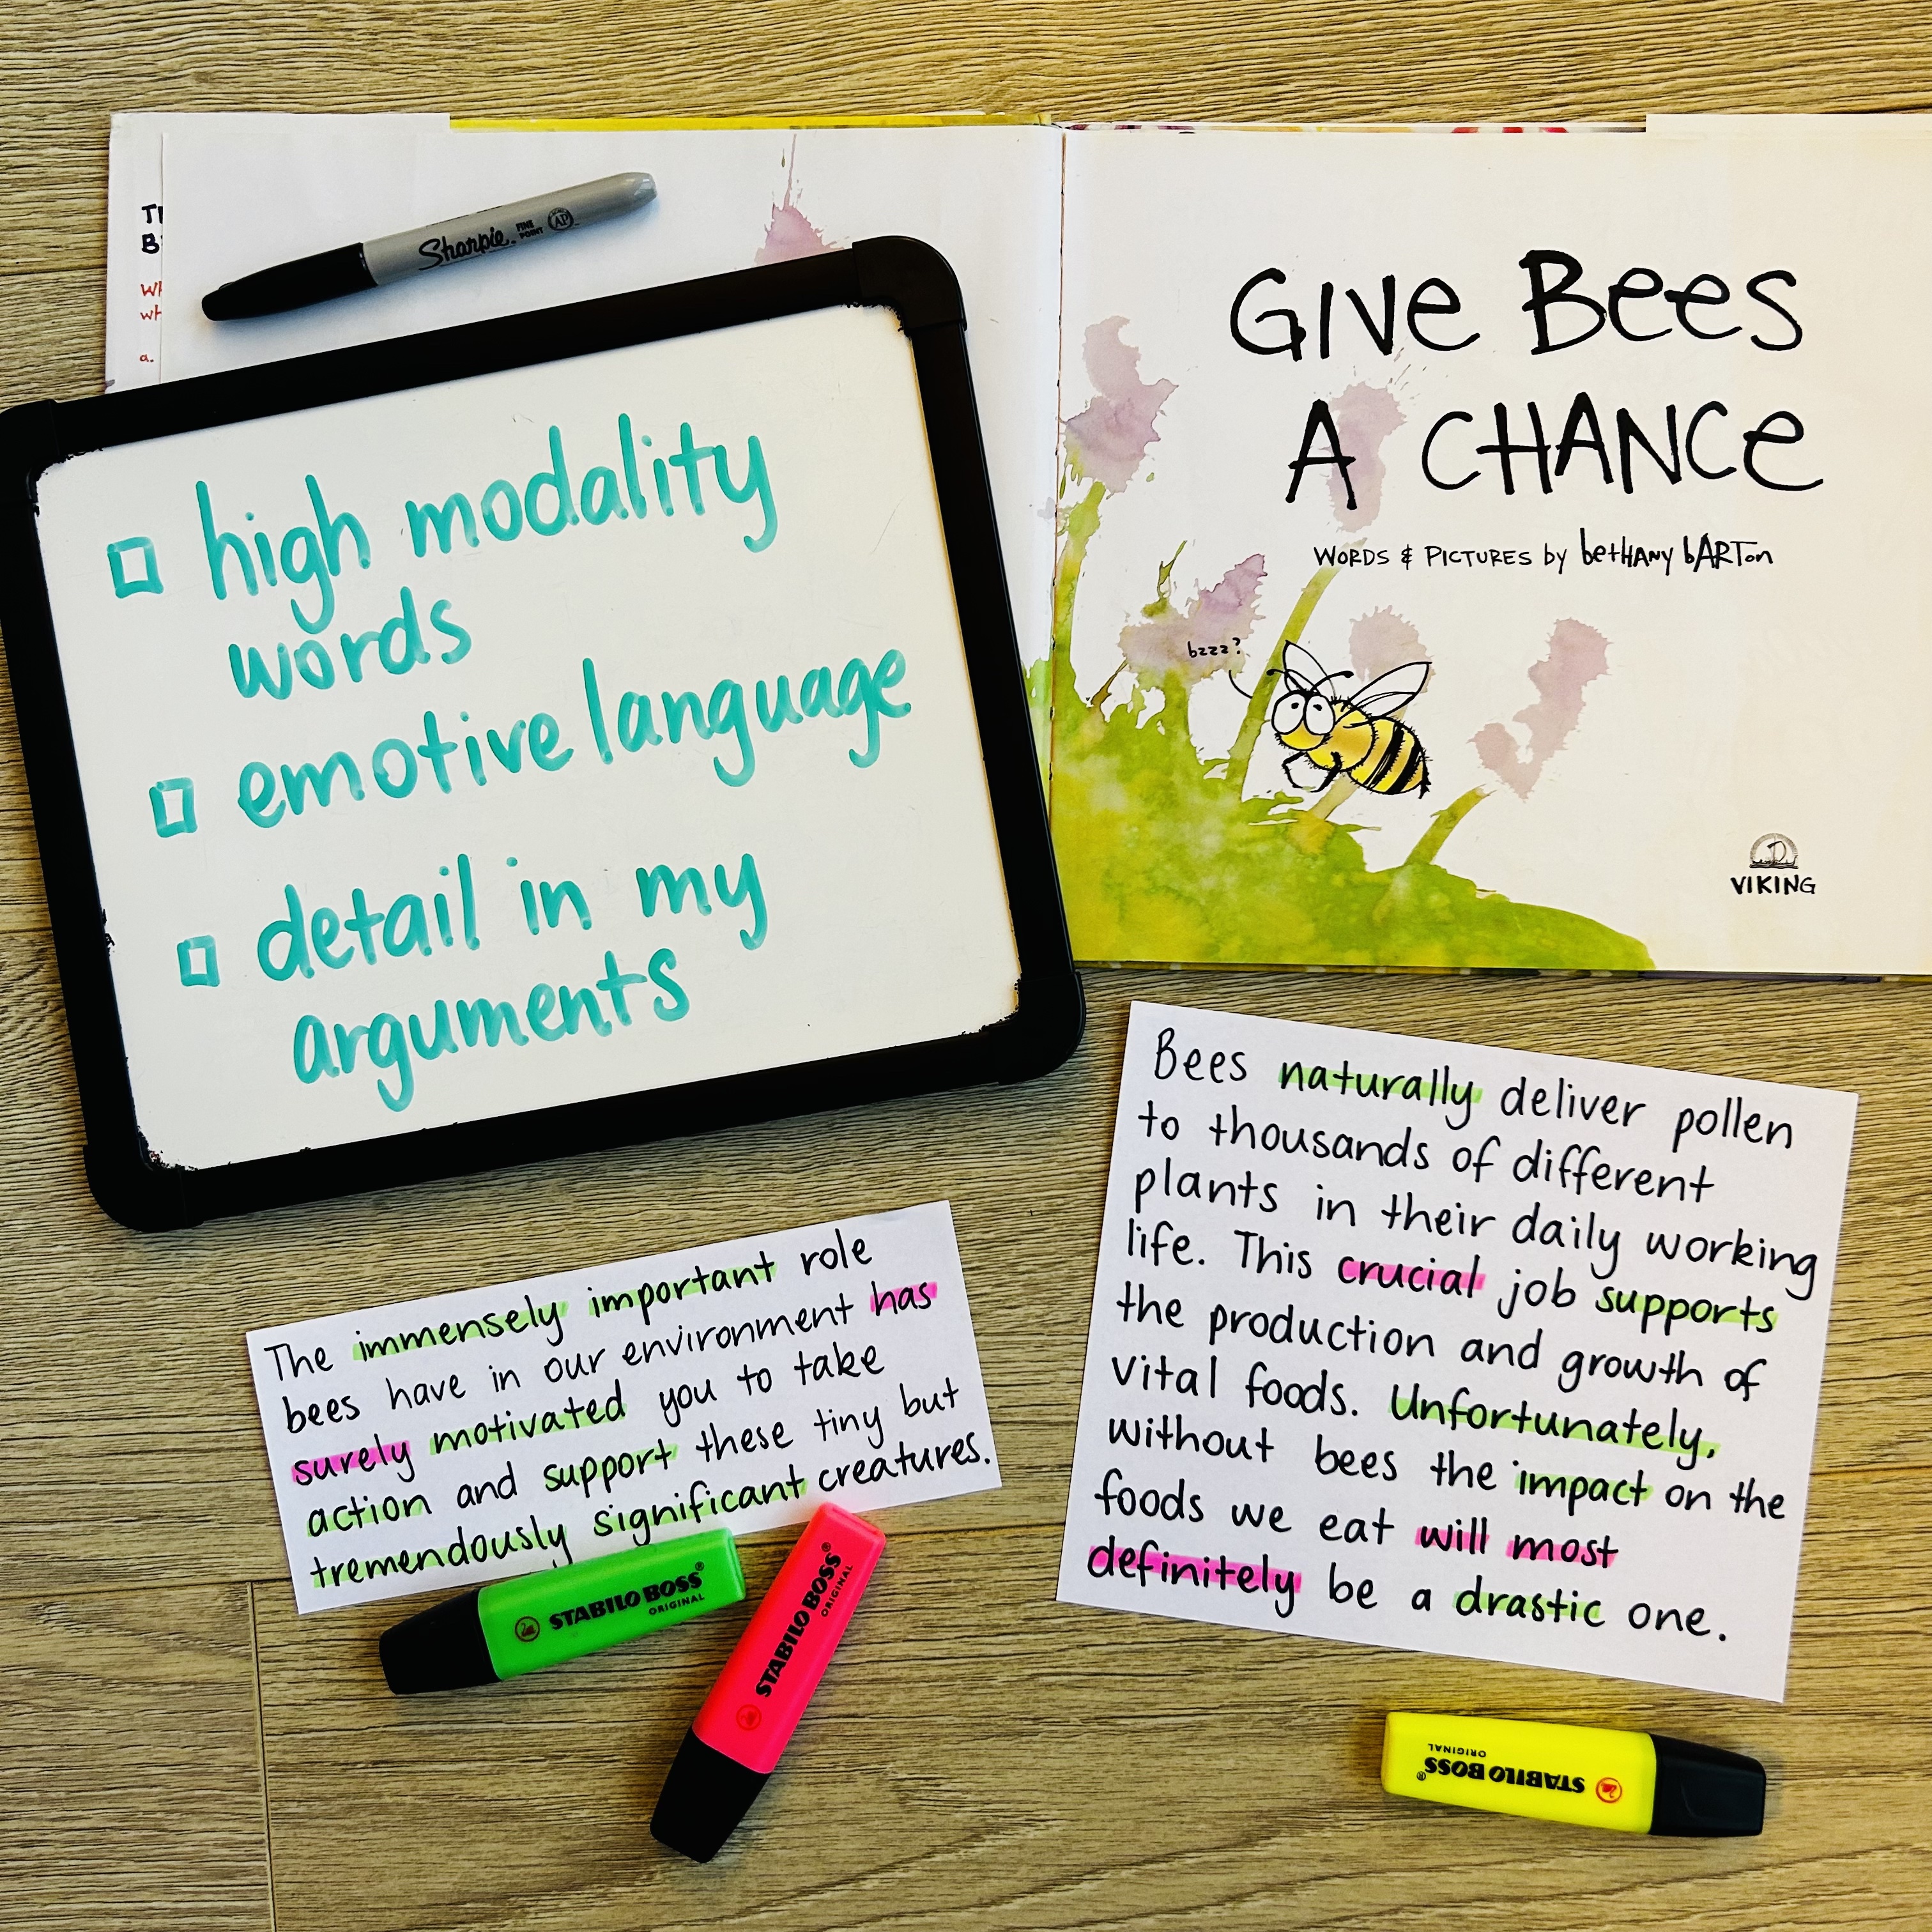 Sharpie
FINE
POINT
AP
□ high modality
words
□ emotive language
□ detail in my
arguments
GIVE BEES
A CHANCE
WORDS & PICTURES by bethany barton
bzzz?
VIKING
The immensely important role
bees have in our environment has
surely motivated you to take
action and support these tiny but
tremendously significant creatures.
Bees naturally deliver pollen
to thousands of different
plants in their daily working
life. This crucial job supports
the production and growth of
vital foods. Unfortunately,
without bees the impact on the
foods we eat will most
definitely be a drastic one.
STABILO BOSS®
ORIGINAL
STABILO BOSS®
ORIGINAL
STABILO BOSS®
ORIGINAL